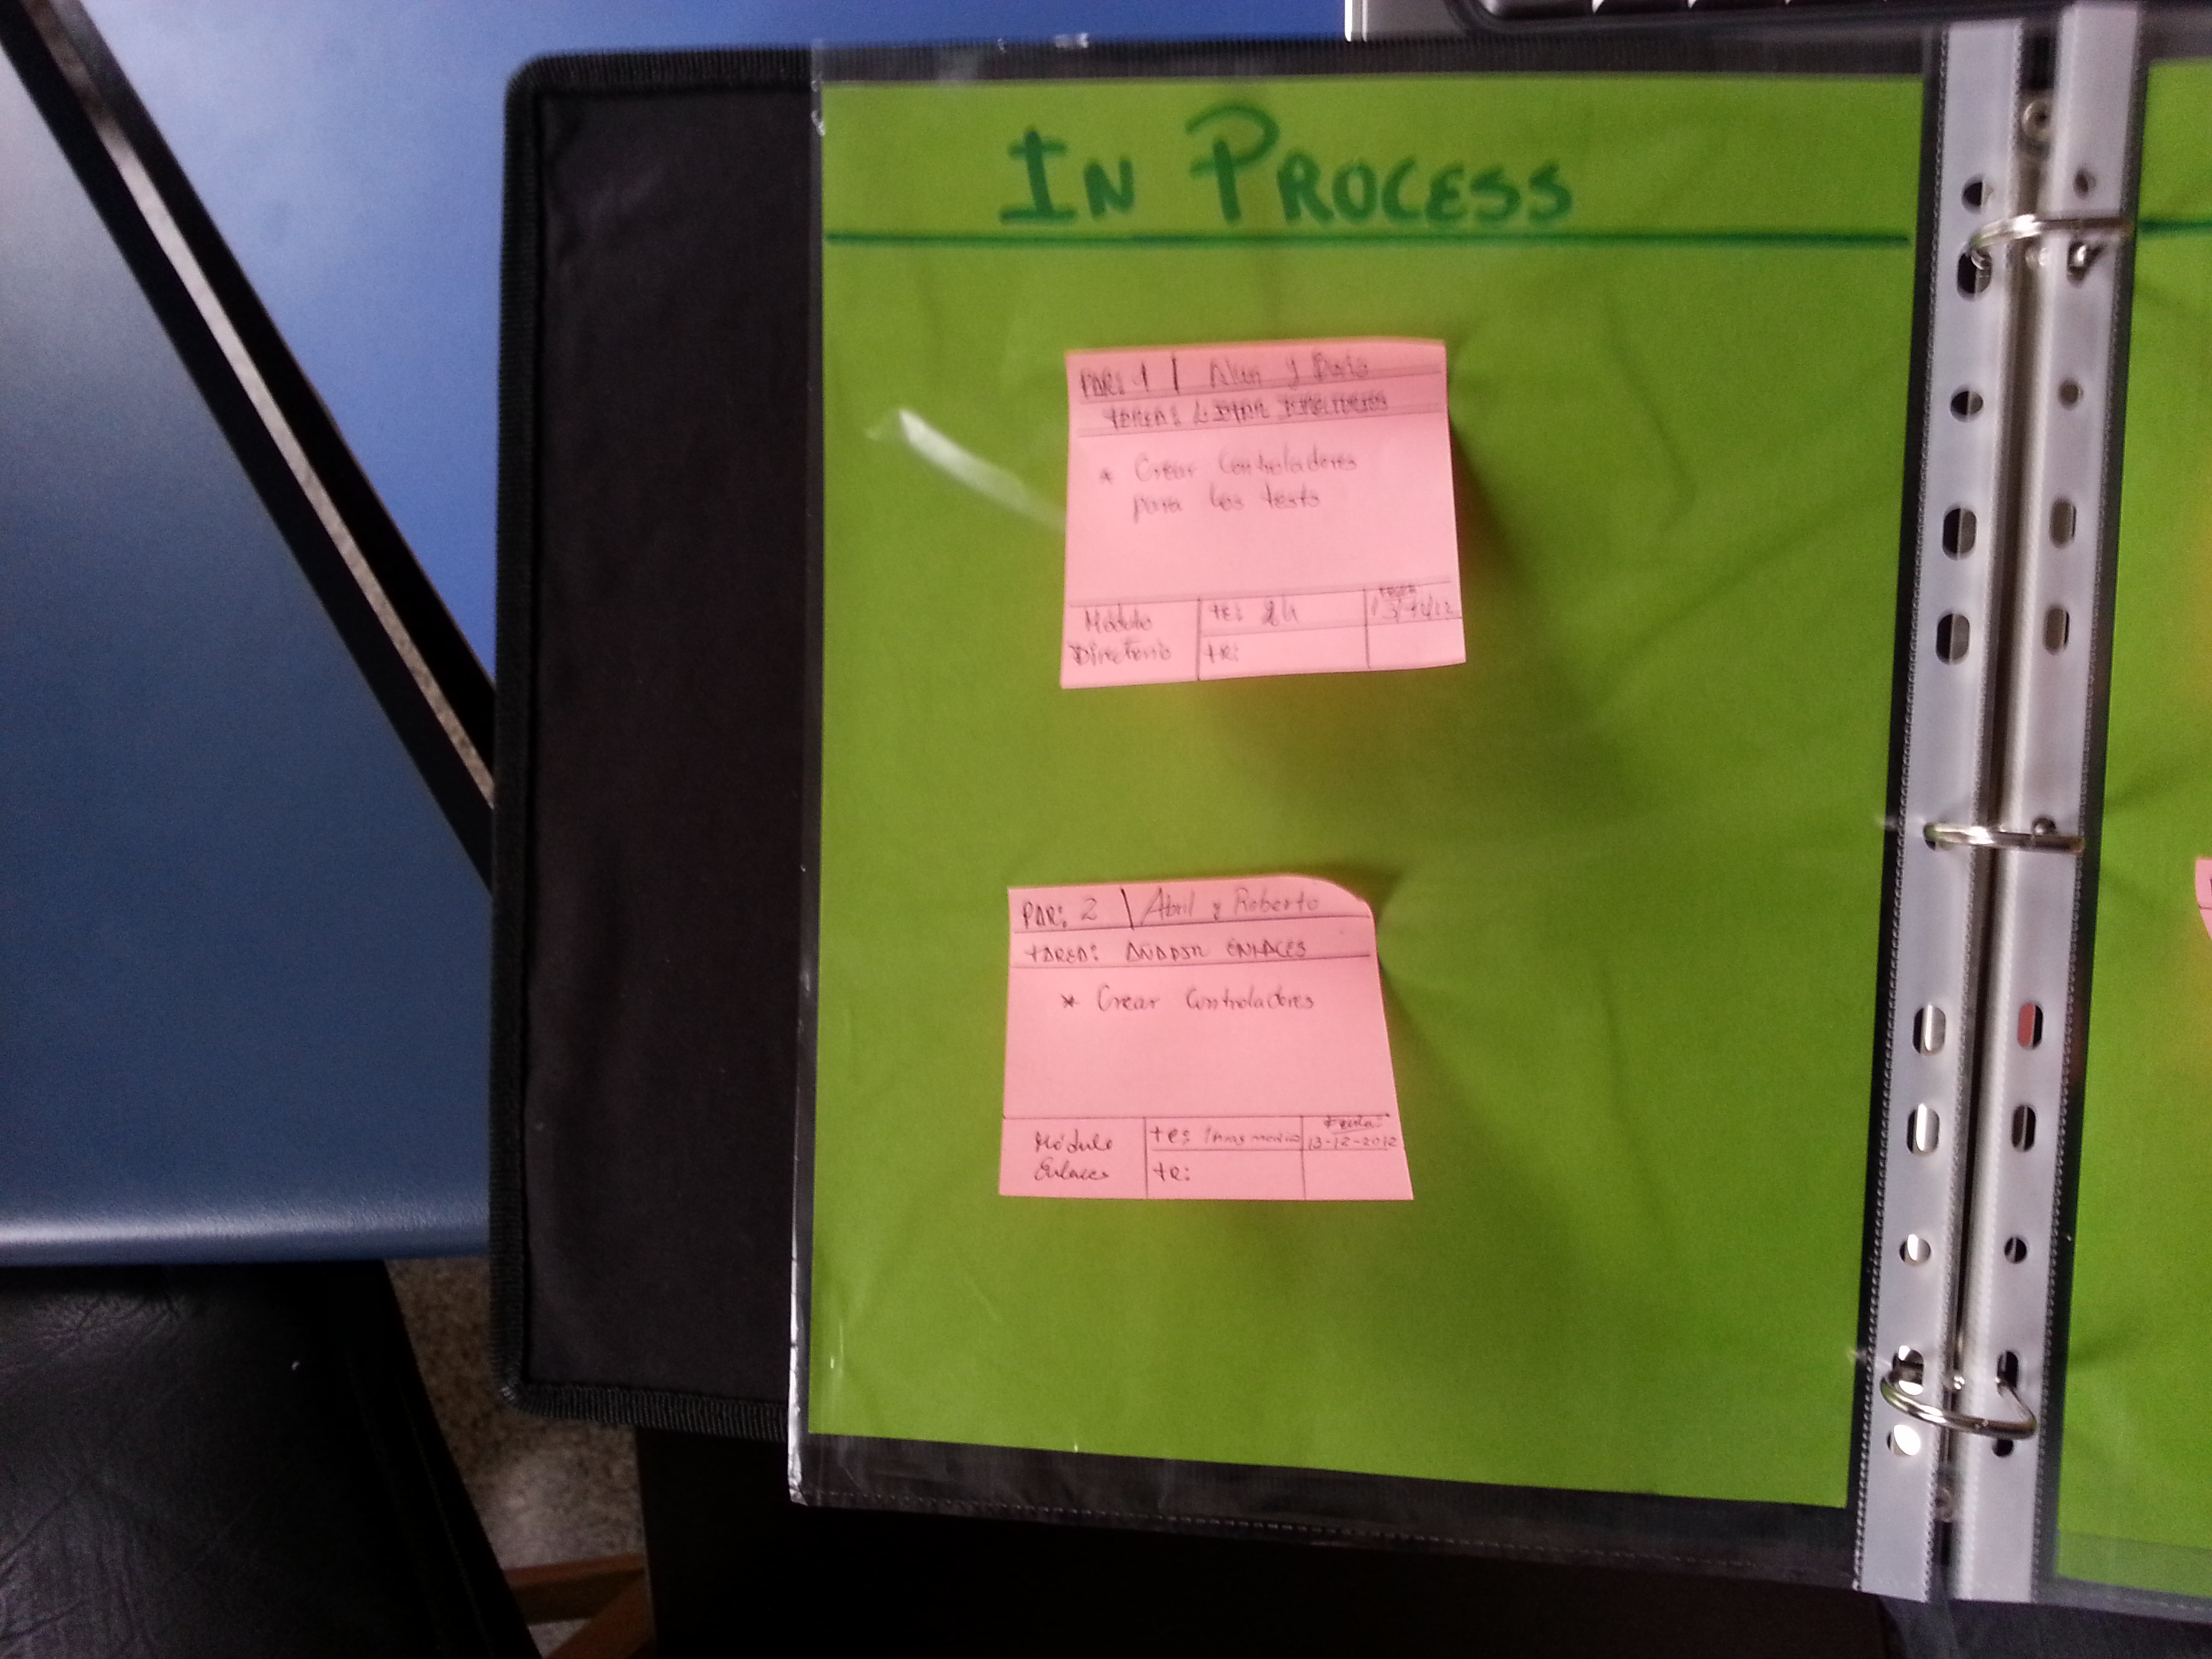 IN PROCESS
PAR: 1 | Alan y
TAREA: LISTAR DIRECTORIOS
* Crear Controladores
para los tests
Módulo
Directorio
te: 2h
tr:
FECHA:
13/12/12
PAR: 2 | Abril y Roberto
TAREA: AÑADIR ENLACES
* Crear Controladores
Módulo
Enlaces
te:
tr:
Fecha:
13-12-2012